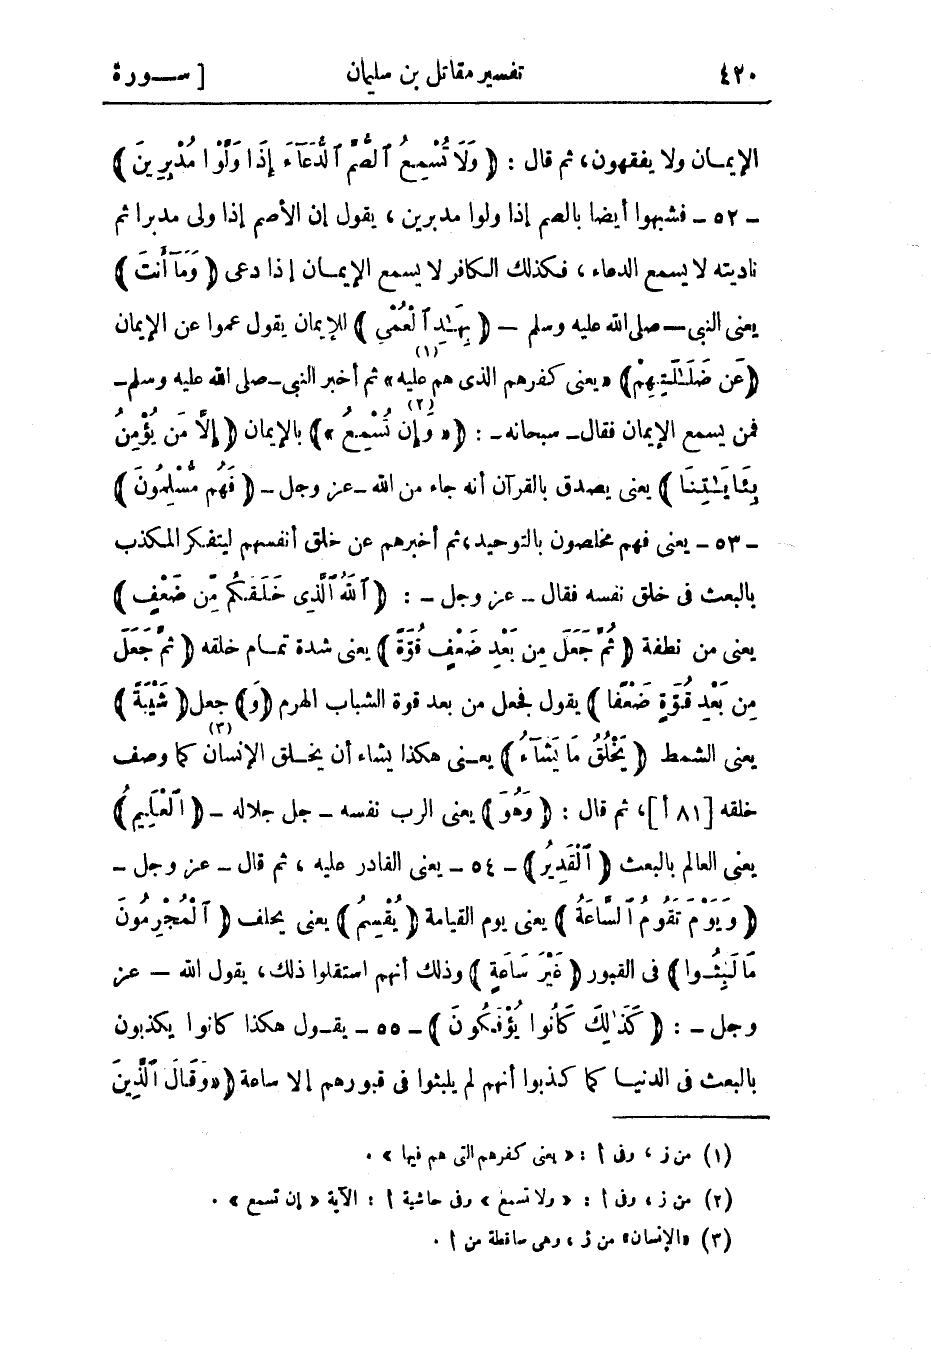 ٤٢٠ تفسير مقاتل بن سليمان [ سورة
الإيمان ولا يفقهون، ثم قال : ( وَلَا تُسْمِعُ ٱلصُّمَّ ٱلدُّعَآءَ إِذَا وَلَّوْا مُدْبِرِينَ )
– ٥٢ – فشبهوا أيضا بالصم إذا ولوا مدبرين ، يقول إن الأصم إذا ولى مدبرا ثم
ناديته لا يسمع الدعاء ، فكذلك الكافر لا يسمع الإيمان إذا دعى ( وَمَآ أَنتَ )
يعنى النبى – صلى الله عليه وسلم – ( بِهَٰدِ ٱلْعُمْىِ ) للإيمان يقول عموا عن الإيمان
( عَن ضَلَٰلَتِهِمْ ) «يعنى كفرهم الذى هم عليه» (١) ثم أخبر النبى – صلى الله عليه وسلم –
فمن يسمع الإيمان فقال – سبحانه – : ( « وَإِن تُسْمِعُ » (٢) ) بالإيمان ( إِلَّا مَن يُؤْمِنُ
بِـَٔايَٰتِنَا ) يعنى يصدق بالقرآن أنه جاء من الله – عز وجل – ( فَهُم مُّسْلِمُونَ )
– ٥٣ – يعنى فهم مخلصون بالتوحيد، ثم أخبرهم عن خلق أنفسهم ليتفكر المكذب
بالبعث فى خلق نفسه فقال – عز وجل – : ( ٱللَّهُ ٱلَّذِى خَلَقَكُم مِّن ضَعْفٍ )
يعنى من نطفة ( ثُمَّ جَعَلَ مِن بَعْدِ ضَعْفٍ قُوَّةً ) يعنى شدة تمام خلقه ( ثُمَّ جَعَلَ
مِن بَعْدِ قُوَّةٍ ضَعْفًا ) يقول فجعل من بعد قوة الشباب الهرم ( وَ ) جعل ( شَيْبَةً )
يعنى الشمط ( يَخْلُقُ مَا يَشَآءُ ) يعنى هكذا يشاء أن يخلق الإنسان (٣) كما وصف
خلقه [ ٨١ أ ]، ثم قال : ( وَهُوَ ) يعنى الرب نفسه – جل جلاله – ( ٱلْعَلِيمُ )
يعنى العالم بالبعث ( ٱلْقَدِيرُ ) – ٥٤ – يعنى القادر عليه ، ثم قال – عز وجل –
( وَيَوْمَ تَقُومُ ٱلسَّاعَةُ ) يعنى يوم القيامة ( يُقْسِمُ ) يعنى يحلف ( ٱلْمُجْرِمُونَ
مَا لَبِثُوا ) فى القبور ( غَيْرَ سَاعَةٍ ) وذلك أنهم استقلوا ذلك ، يقول الله – عز
وجل – : ( كَذَٰلِكَ كَانُوا يُؤْفَكُونَ ) – ٥٥ – يقول هكذا كانوا يكذبون
بالبعث فى الدنيا كما كذبوا أنهم لم يلبثوا فى قبورهم إلا ساعة ( « وَقَالَ ٱلَّذِينَ
(١) من ز ، وفى أ : « يعنى كفرهم التى هم فيها » .
(٢) من ز ، وفى أ : « ولا تسمع » وفى حاشية أ : الآية « إن تسمع » .
(٣) «الإنسان» من ز ، وهى ساقطة من أ .